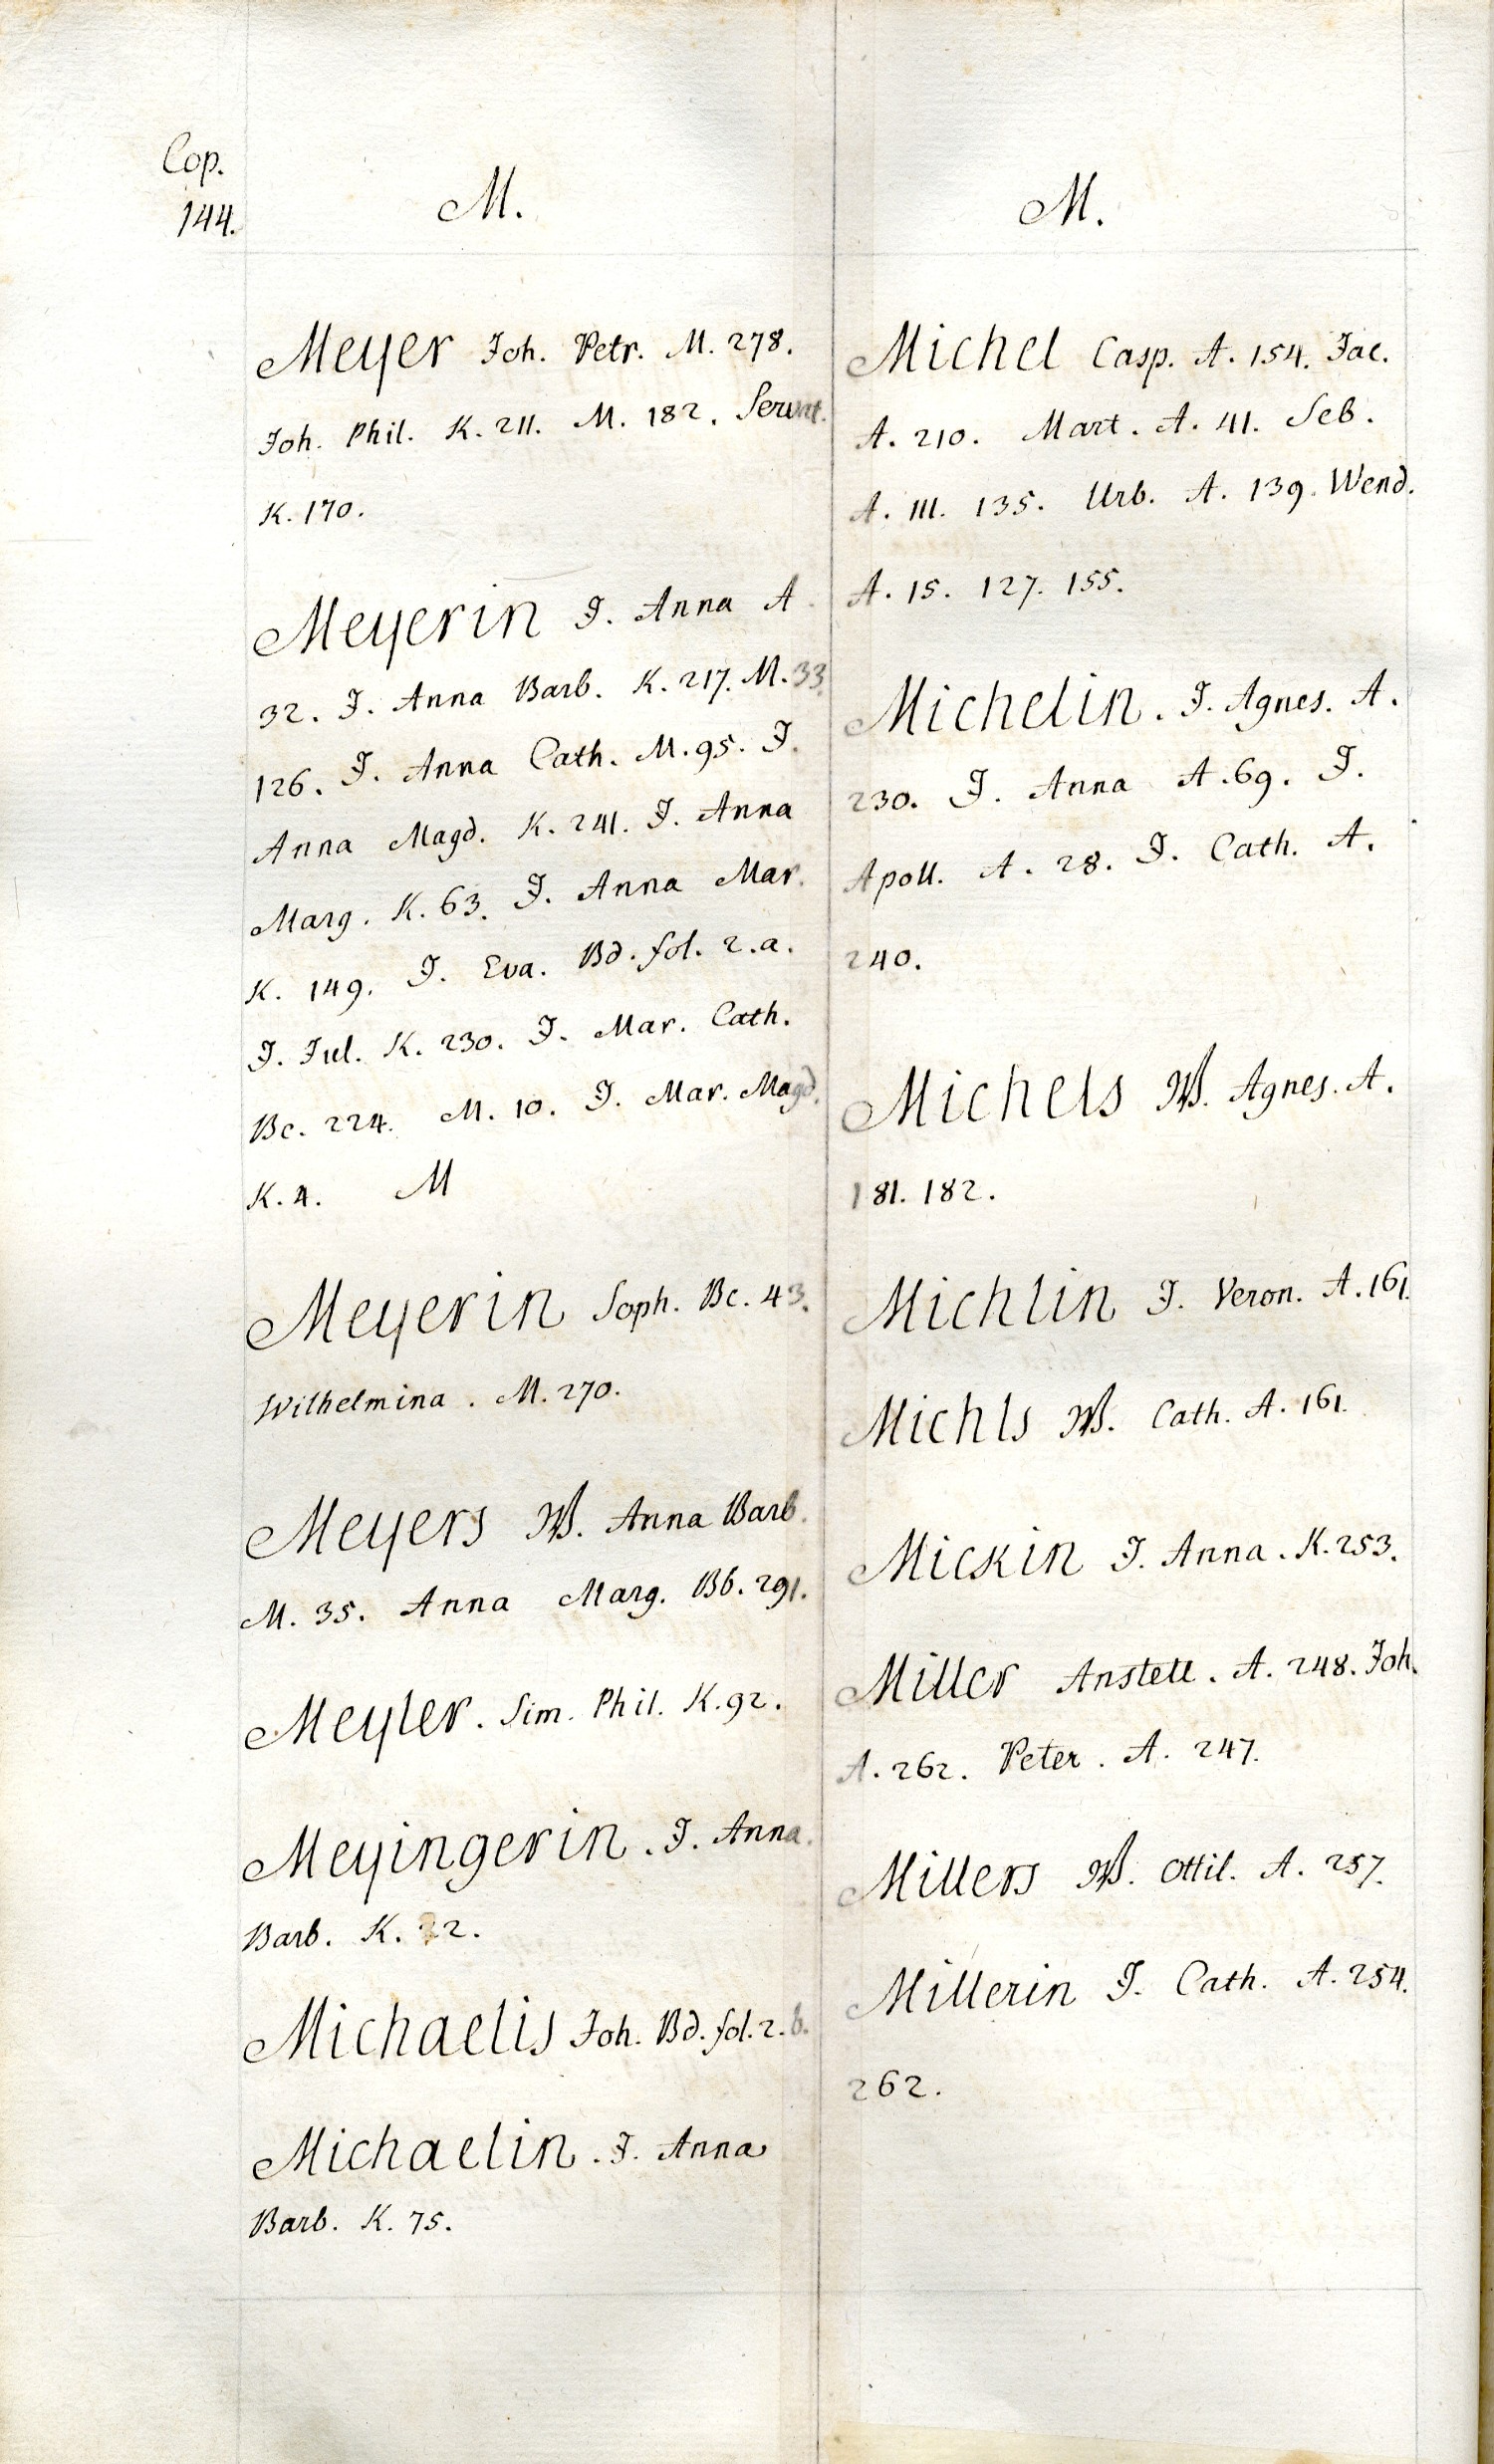 Cop.
144.
M.
Meyer Joh. Petr. M. 278.
Joh. Phil. K. 211. M. 182. Servat.
K. 170.
Meyerin J. Anna A.
32. J. Anna Barb. K. 217. M. 33.
126. J. Anna Cath. M. 95. J.
Anna Magd. K. 241. J. Anna
Marg. K. 63. J. Anna Mar.
K. 149. J. Eva. Bd. fol. 2. a.
J. Jul. K. 230. J. Mar. Cath.
Bc. 224. M. 10. J. Mar. Magd.
K. 4. M
Meyerin Soph. Bc. 43.
Wilhelmina. M. 270.
Meyers W. Anna Barb.
M. 35. Anna Marg. Bb. 291.
Meyler. Sim. Phil. K. 92.
Meyingerin. J. Anna.
Barb. K. 22.
Michaelis Joh. Bd. fol. 2. b.
Michaelin. J. Anna
Barb. K. 75.
M.
Michel Casp. A. 154. Jac.
A. 210. Mart. A. 41. Seb.
A. 111. 135. Urb. A. 139. Wend.
A. 15. 127. 155.
Michelin. J. Agnes. A.
230. J. Anna A. 69. J.
Apoll. A. 28. J. Cath. A.
240.
Michels W. Agnes. A.
181. 182.
Michlin J. Veron. A. 161.
Michls W. Cath. A. 161.
Mickin J. Anna. K. 253.
Miller Anstett. A. 248. Joh.
A. 262. Peter. A. 247.
Millers W. Ottil. A. 257.
Millerin J. Cath. A. 254.
262.